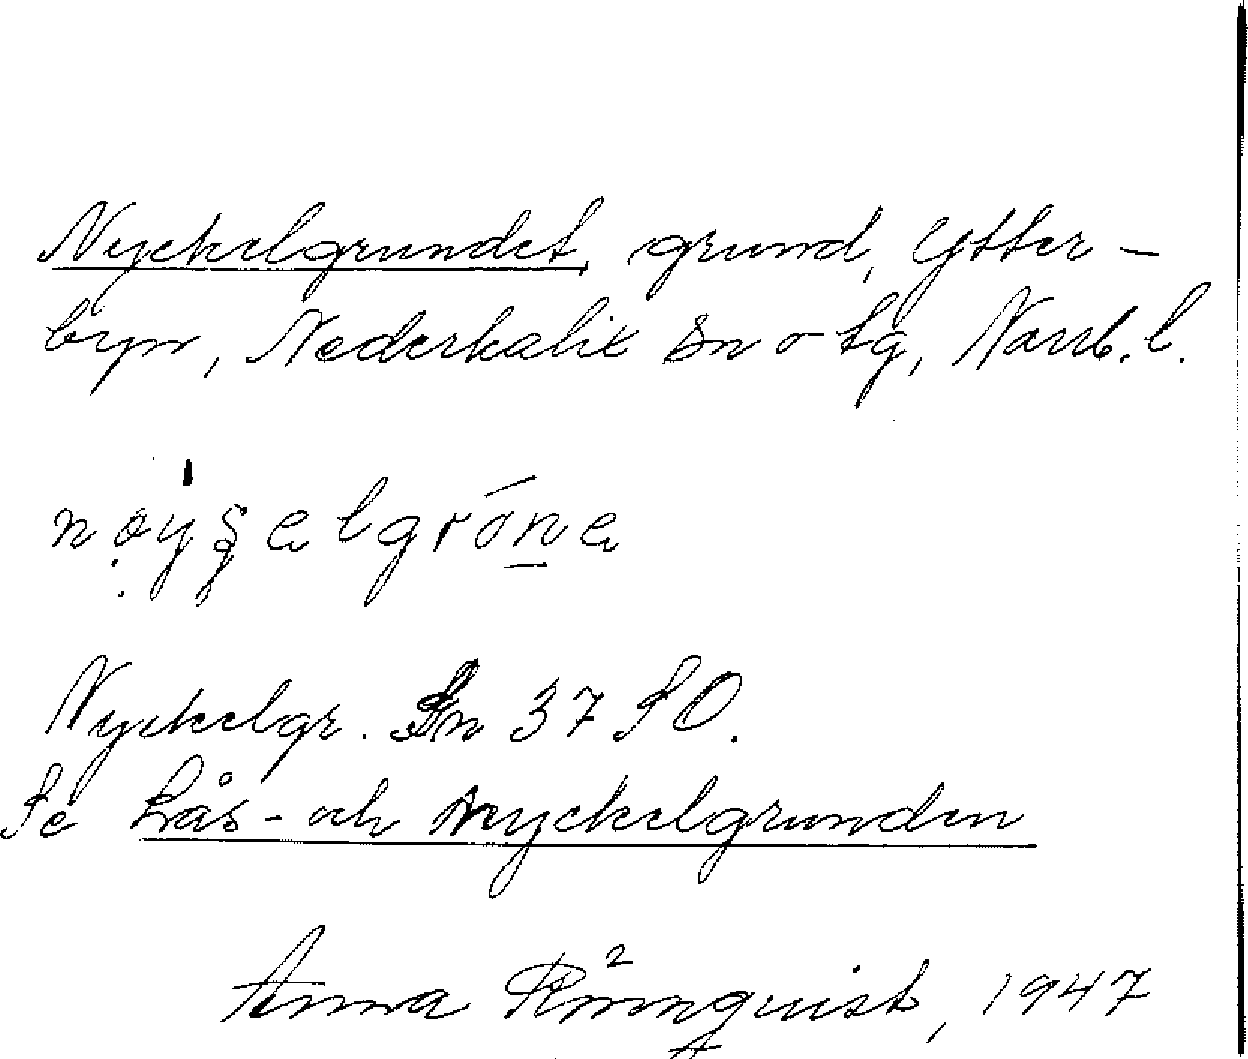 Nyckelgrundet, grund, Ytter-
byn, Nederkalix sn o tg, Norrb. l.
Nyckelgr. Sn 37 SO.
Se Lås- och nyckelgrunden
Anna Rönnquist, 1947